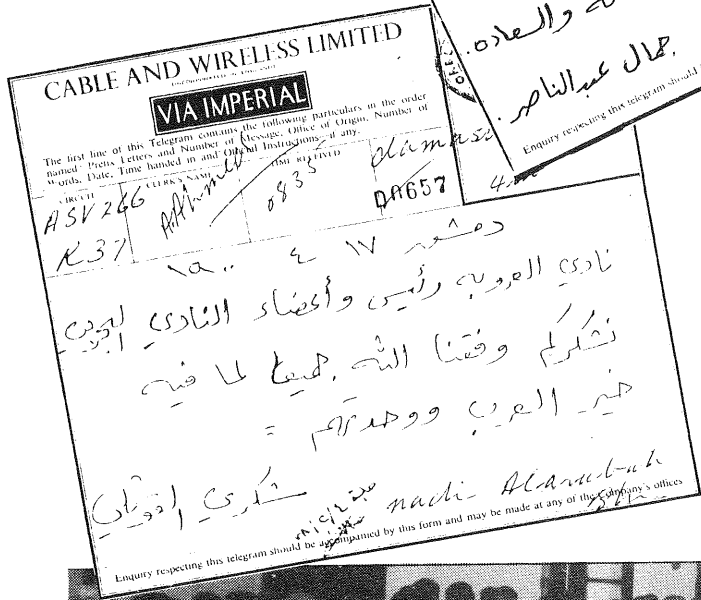 CABLE AND WIRELESS LIMITED
VIA IMPERIAL
The first line of this Telegram contains the following particulars in the order
named Prefix Letters and Number of Message, Office of Origin, Number of
Words, Date, Time handed in and Official Instructions—if any.
CIRCUIT CLERK'S NAME TIME RECEIVED
ASV266 0835
K37 DA657
دمشق ١٧ ٤
نادي العروبه رئيس وأعضاء النادي البحرين
نشكركم وفقنا الله جميعا لما فيه
خير العرب ووحدتهم =
شكري القوتلي
nadi Alarubah
Enquiry respecting this telegram should be accompanied by this form and may be made at any of the Company's offices
والسعاده.
جمال عبدالناصر.
Enquiry respecting this telegram should